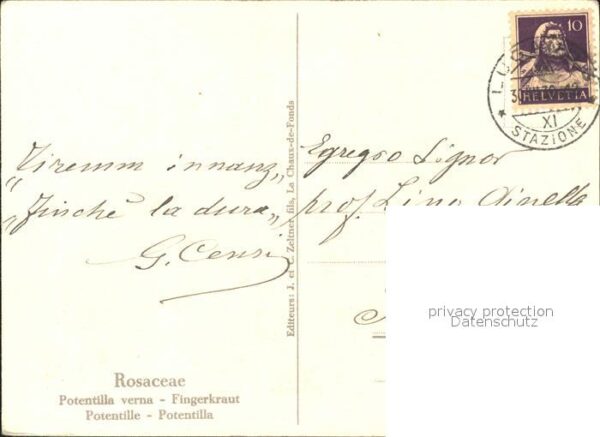 „Viremm innanz„
„Finchè la dura„
G. Censi
Rosaceae
Potentilla verna - Fingerkraut
Potentille - Potentilla
Editeurs: J. et C. Zeltner, fils, La Chaux-de-Fonds
10
HELVETIA
XI
STAZIONE
Egregio Signor
prof. Lino
privacy protection
Datenschutz